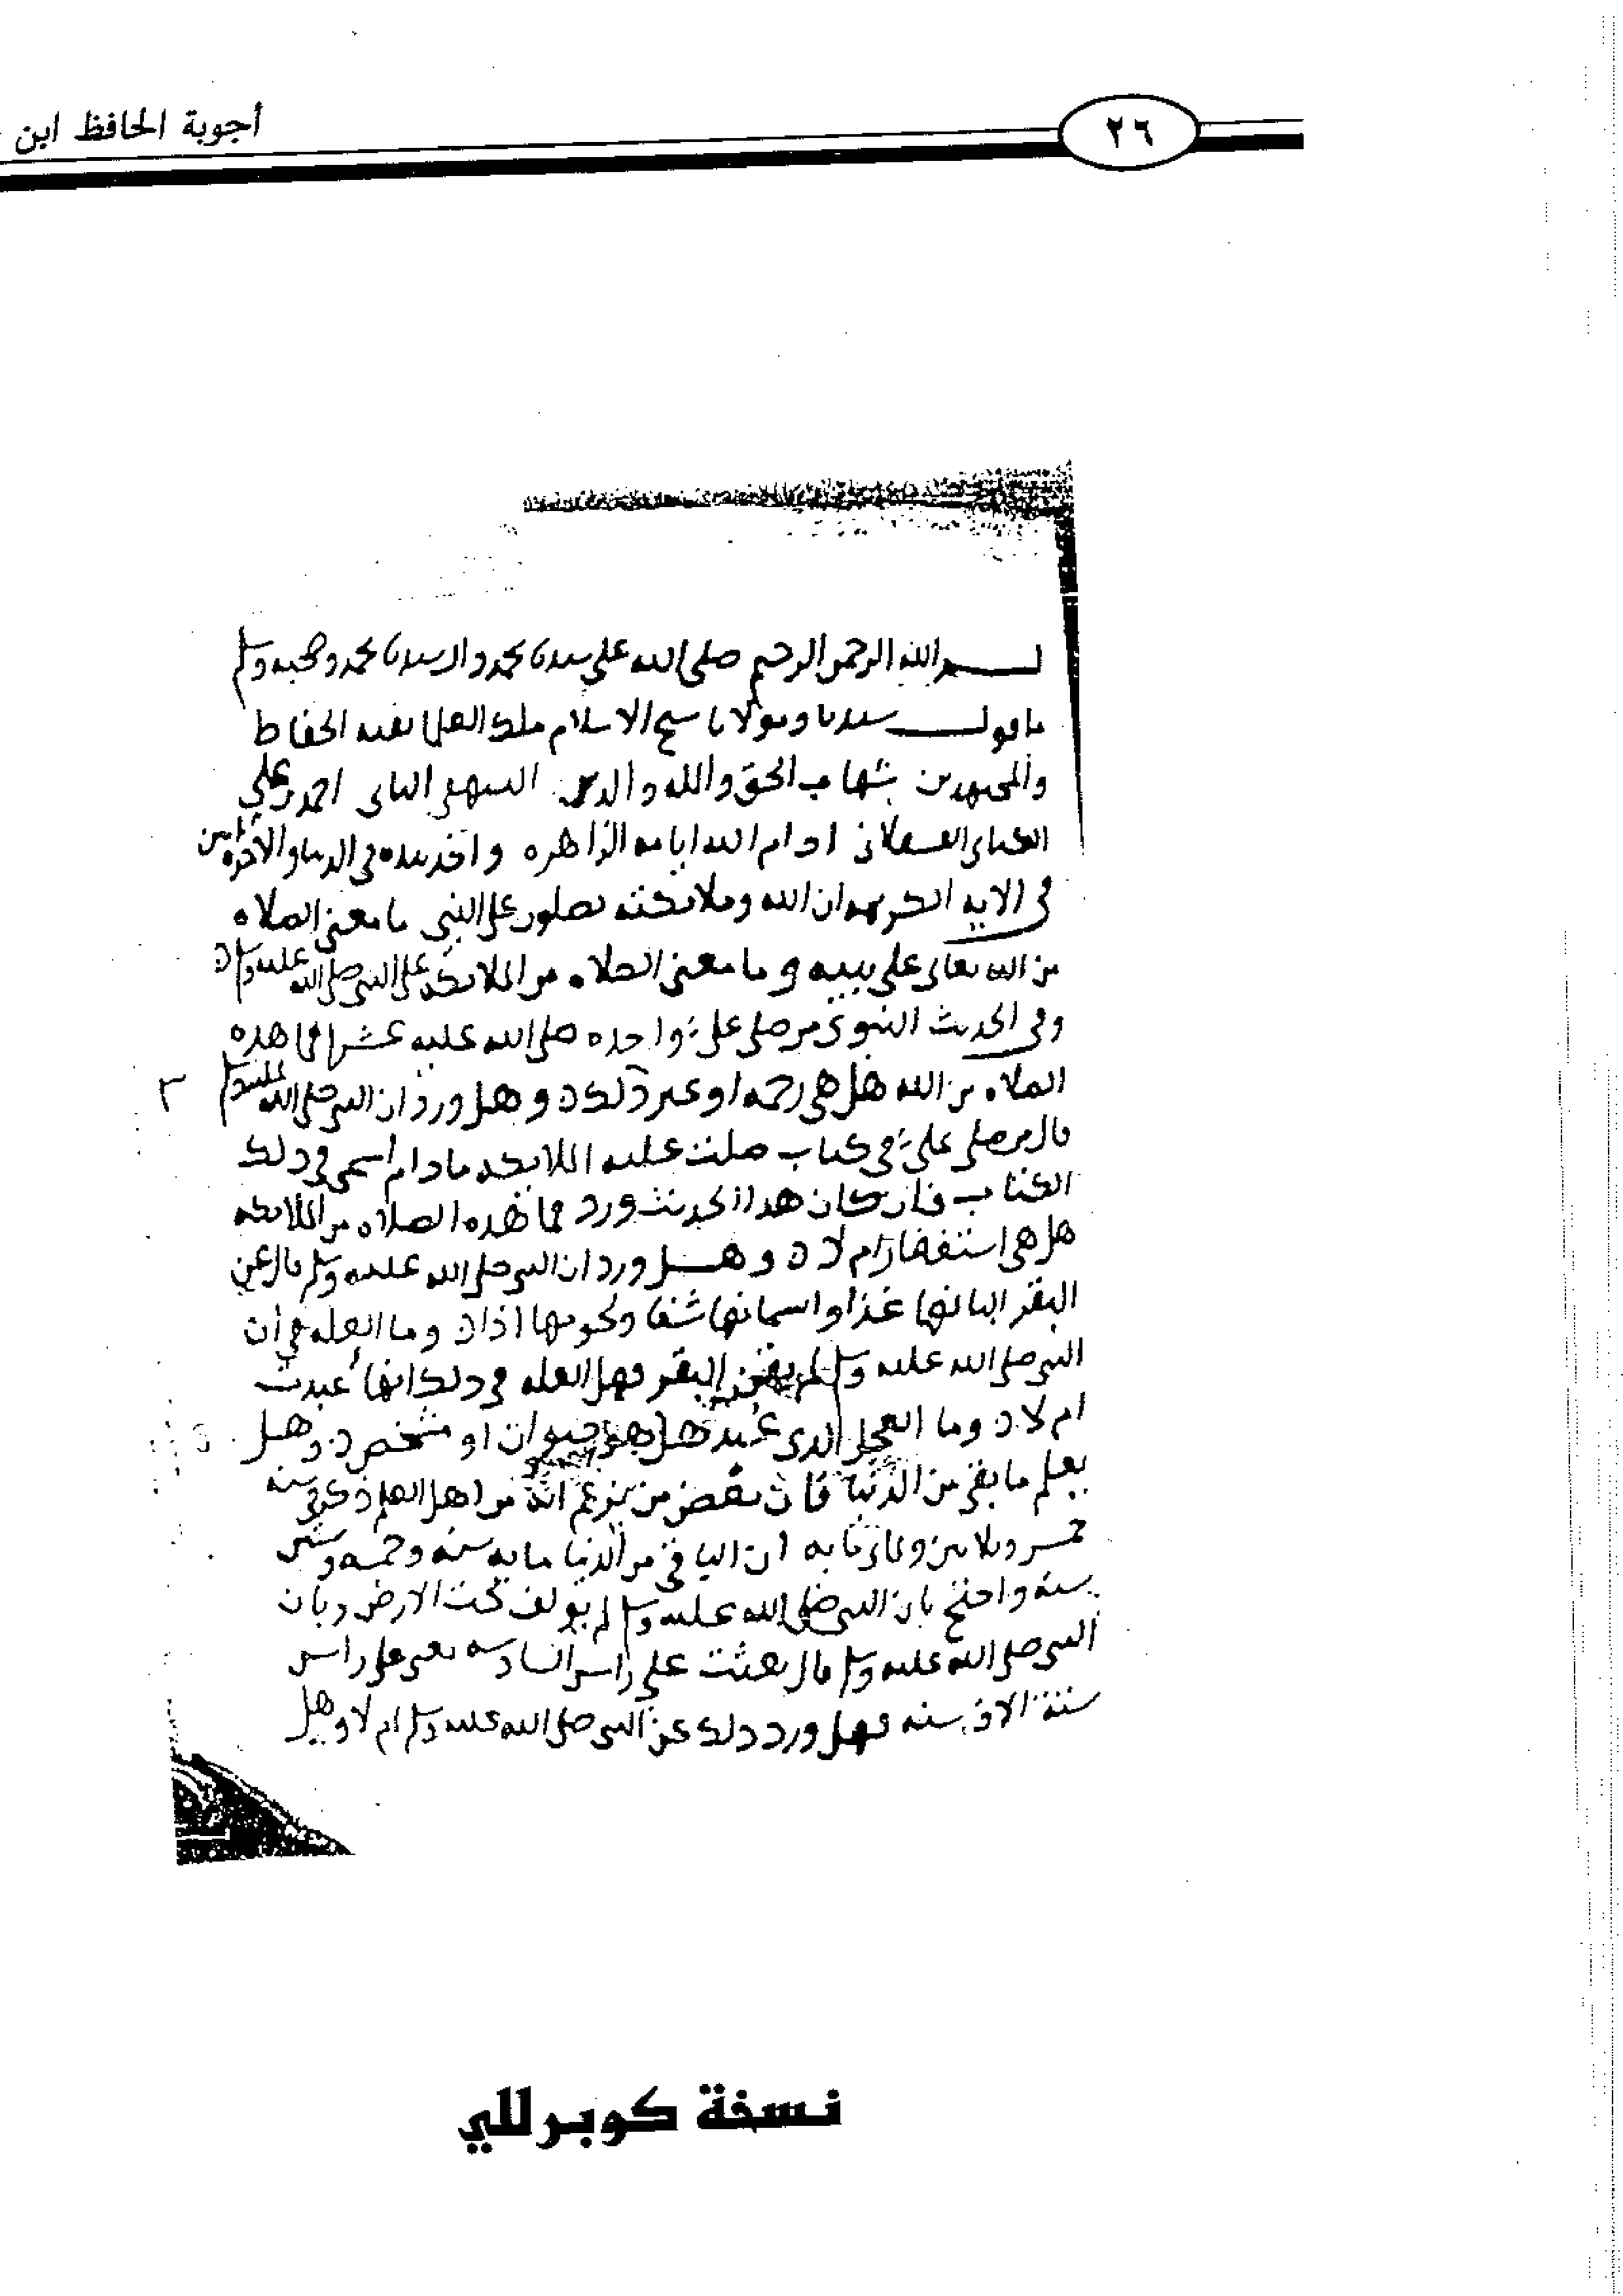 أجوبة الحافظ ابن
٢٦
بسم الله الرحمن الرحيم صلى الله على سيدنا محمد وال سيدنا محمد وصحبه وسلم
ما قول سيدنا ومولانا شيخ الاسلام ملك العلما بقيه الحفاظ
والمجتهدين شهاب الحق والمله والدين احمد بن علي
الكناني العسقلاني ادام الله ايامه الزاهره في الدنيا والآخره امين
في الايه الكريمه ان الله وملائكته يصلون على النبي ما معنى الصلاه
من الله تعالى على نبيه وما معنى الصلاه من الملائكه على النبي صلى الله عليه وسلم
وفي الحديث النبوي من صلى علي واحده صلى الله عليه عشرا فما هذه
الصلاه من الله هل هي رحمه او غير ذلك وهل ورد ان النبي صلى الله عليه وسلم
قال من صلى علي في كتاب صلت عليه الملائكه ما دام اسمي في ذلك
الكتاب فان كان هذا الحديث ورد فما هذه الصلاه من الملائكه
هل هي استغفار ام لا وهل ورد ان النبي صلى الله عليه وسلم قال عن
البقر البانها غذا واسمانها شفا ولحومها اذا وما العله في أن
النبي صلى الله عليه وسلم لم البقر فهل العله في ذلك انها عبدت
ام لا وما العجل الذي عبد هل هو حيوان او شخص وهل
يعلم ما بقي من الدنيا فان بعض من يزعم انه من اهل العلم ذكر في سنه
خمس وثلاثين وثمانمايه ان الباقي من الدنيا مايه سنه وخمسه وستين
سنه واحتج بان النبي صلى الله عليه وسلم لم يؤلف تحت الارض وبان
النبي صلى الله عليه وسلم قال بعثت على راس السادسه يعني على راس
ستة الاف سنه فهل ورد ذلك عن النبي صلى الله عليه وسلم ام لا وهل
نسخة كوبرللي